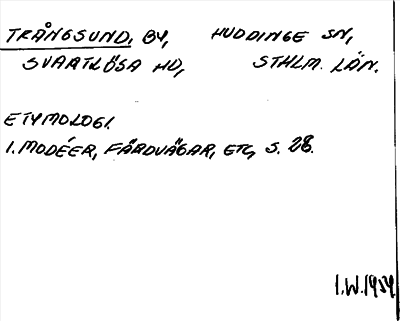 TRÅNGSUND, BY, HUDDINGE SN,
SVARTLÖSA HD, STHLM. LÄN.
ETYMOLOGI.
I. MODÉER, FÄRDVÄGAR, ETC, S. 28.
I.W.1959